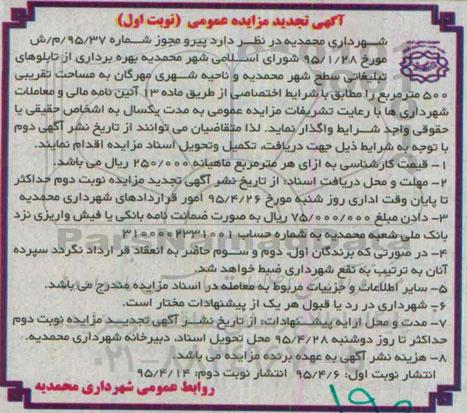 آگهی تجدید مزایده عمومی (نوبت اول)
شهرداری محمدیه در نظر دارد پیرو مجوز شماره ۹۵/۳۷/م/ش
مورخ ۹۵/۱/۲۸ شورای اسلامی شهر محمدیه بهره برداری از تابلوهای
تبلیغاتی سطح شهر محمدیه و ناحیه شهری مهرگان به مساحت تقریبی
۵۰۰ مترمربع را مطابق با شرایط اختصاصی از طریق ماده ۱۳ آئین نامه مالی و معاملات
شهرداری ها با رعایت تشریفات مزایده عمومی به مدت یکسال به اشخاص حقیقی یا
حقوقی واجد شرایط واگذار نماید. لذا متقاضیان می توانند از تاریخ نشر آگهی دوم
با توجه به شرایط ذیل جهت دریافت، تکمیل وتحویل اسناد مزایده اقدام نمایند.
۱- قیمت کارشناسی به ازای هر مترمربع ماهیانه ۲۵۰/۰۰۰ ریال می باشد.
۲- مهلت و محل دریافت اسناد: از تاریخ نشر آگهی تجدید مزایده نوبت دوم حداکثر
تا پایان وقت اداری روز شنبه مورخ ۹۵/۴/۲۶ امور قراردادهای شهرداری محمدیه
۳- دادن مبلغ ۷۵/۰۰۰/۰۰۰ ریال به صورت ضمانت نامه بانکی یا فیش واریزی نزد
بانک ملی شعبه محمدیه به شماره حساب ۳۱۰۰۰۰۲۳۳۱۰۰۱
۴- در صورتی که برندگان اول، دوم و سوم حاضر به انعقاد قرار داد نگردد سپرده
آنان به ترتیب به نفع شهرداری ضبط خواهد شد.
۵- سایر اطلاعات و جزییات مربوط به معامله در اسناد مزایده مندرج می باشد.
۶- شهرداری در رد یا قبول هر یک از پیشنهادات مختار است.
۷- مدت و محل ارایه پیشنهادات: از تاریخ نشر آگهی تجدید مزایده نوبت دوم
حداکثر تا روز دوشنبه ۹۵/۴/۲۸ محل تحویل اسناد، دبیرخانه شهرداری محمدیه.
۸- هزینه نشر آگهی به عهده برنده مزایده می باشد.
انتشار نوبت اول: ۹۵/۴/۶ انتشار نوبت دوم: ۹۵/۴/۱۴
روابط عمومی شهرداری محمدیه